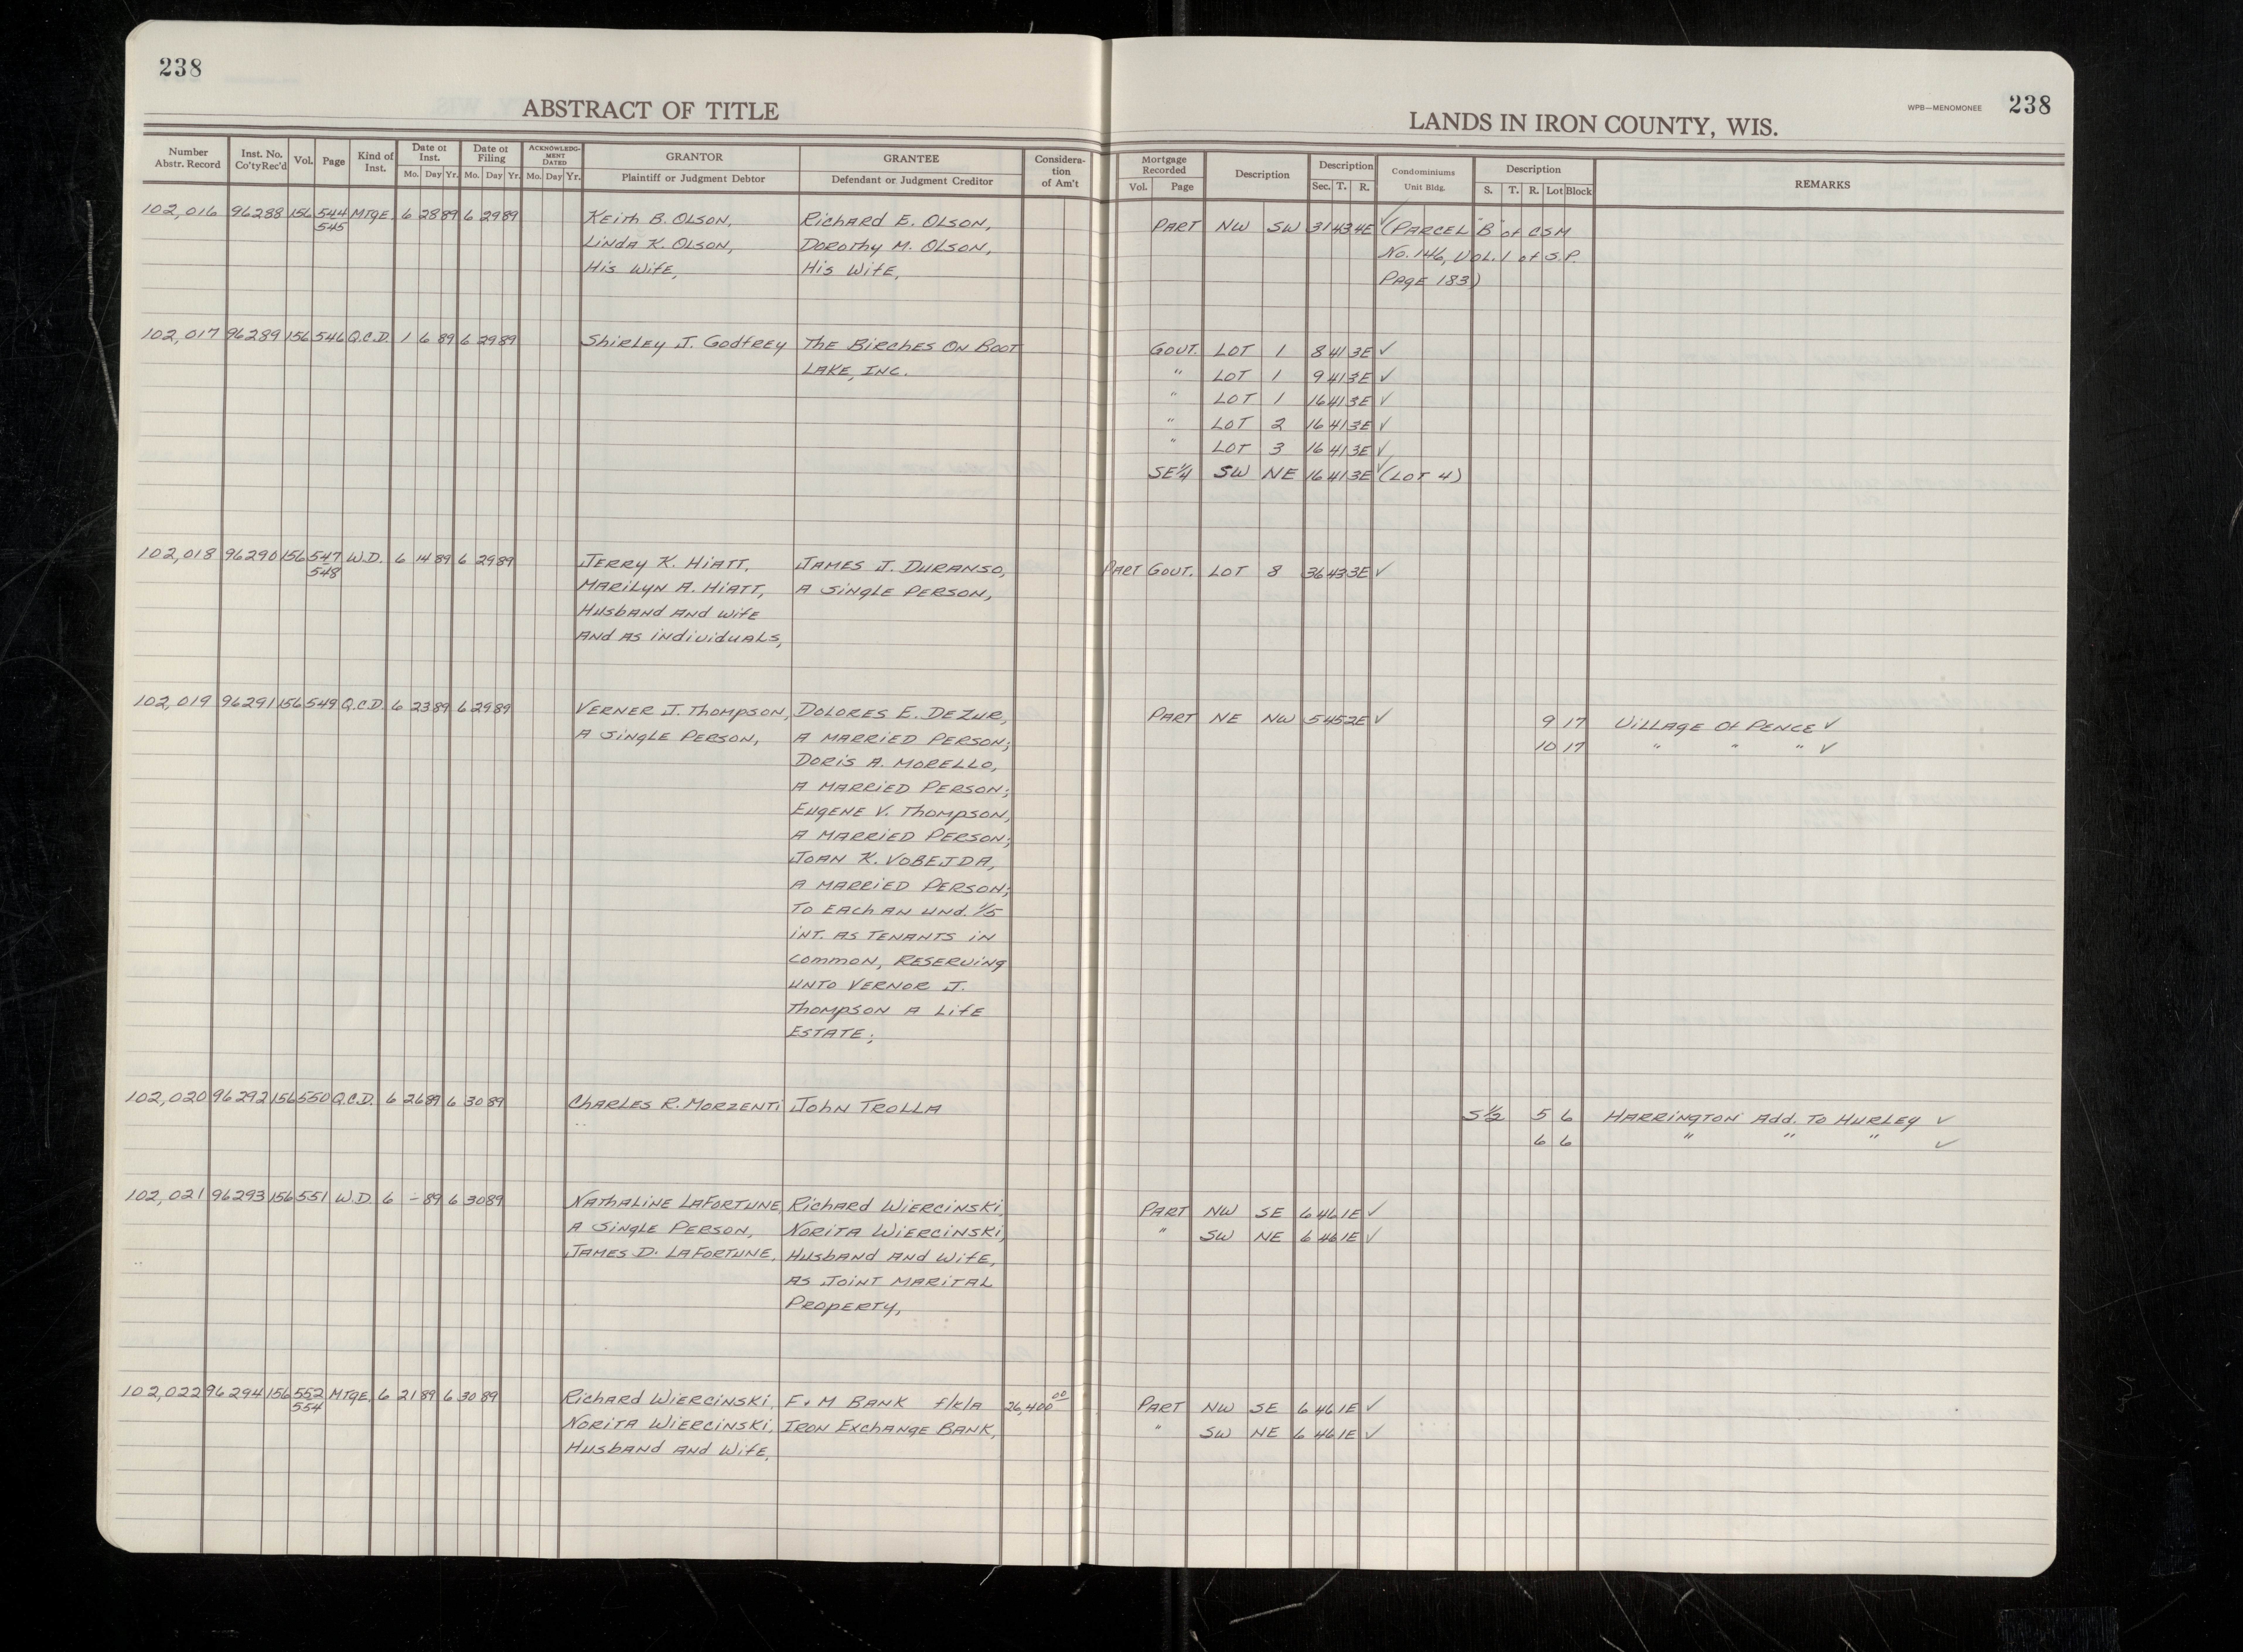 238
ABSTRACT OF TITLE
Number Abstr. Record Inst. No. Co'ty Rec'd Vol. Page Kind of Inst. Date of Inst. Mo. Day Yr. Date of Filing Mo. Day Yr. ACKNOWLEDGMENT DATED Mo. Day Yr. GRANTOR Plaintiff or Judgment Debtor GRANTEE Defendant or Judgment Creditor Consideration of Am't
WPB—MENOMONEE 238
LANDS IN IRON COUNTY, WIS.
Mortgage Recorded Vol. Page Description Description Sec. T. R. Condominiums Unit Bldg. Description S. T. R. Lot Block REMARKS
102,016 96288 156 544 MTGE. 6 28 89 6 29 89 Keith B. OLSON, Richard E. OLSON, PART NW SW 31 43 4E ✓ (PARCEL "B" of CSM
545 Linda K. OLSON, DOROthy M. OLSON, No. 146, VOL. 1 of S.P.
His Wife, His Wife, PAGE 183)
102,017 96289 156 546 Q.C.D. 1 6 89 6 29 89 ShiRLEY J. GodfREY THE BiRCHES ON BOOT GOVT. LOT 1 8 41 3E ✓
LAKE, INC. " LOT 1 9 41 3E ✓
" LOT 1 16 41 3E ✓
" LOT 2 16 41 3E ✓
" LOT 3 16 41 3E ✓
SE¼ SW NE 16 41 3E ✓ (LOT 4)
102,018 96290 156 547 W.D. 6 14 89 6 29 89 JERRY K. HiATT, JAMES J. DURANSO, PART GOVT. LOT 8 36 43 3E ✓
548 MARiLyN A. HiATT, A SiNGLE PERSON,
HusbAND AND Wife
ANd AS iNdividuALS,
102,019 96291 156 549 Q.C.D. 6 23 89 6 29 89 VERNER J. ThompSON, DOLORES E. DEZUR, PART NE NW 5 45 2E ✓ 9 17 ViLLAGE Of PENCE ✓
A SiNGLE PERSON, A MARRiED PERSON; 10 17 " " " ✓
DORiS A. MORELLO,
A MARRiED PERSON;
EugENE V. ThompSON,
A MARRiED PERSON;
JOAN K. VOBEJDA,
A MARRiED PERSON;
TO EACh AN UNd. 1/5
iNT. AS TENANTS iN
COMMON, RESERViNg
UNTO VERNOR J.
ThompSON A LifE
ESTATE;
102,020 96292 156 550 Q.C.D. 6 26 89 6 30 89 ChARLES R. MORZENTi JOhN TROLLA S½ 5 6 HARRiNgTON Add. TO HURLEY ✓
6 6 " " " ✓
102,021 96293 156 551 W.D. 6 - 89 6 30 89 NAThALiNE LAFORTUNE, RichARd WiERCiNSKi, PART NW SE 6 46 1E ✓
A SiNGLE PERSON, NORiTA WiERCiNSKi, " SW NE 6 46 1E ✓
JAMES D. LAFORTUNE, HusbANd ANd Wife,
AS JOiNT MARiTAL
PROpERTY,
102,022 96294 156 552 MTGE. 6 21 89 6 30 89 RichARd WiERCiNSKi, F & M BANK f/k/a 26,400.00 PART NW SE 6 46 1E ✓
554 NORiTA WiERCiNSKi, IRON ExchANgE BANK, " SW NE 6 46 1E ✓
HusbANd ANd Wife,